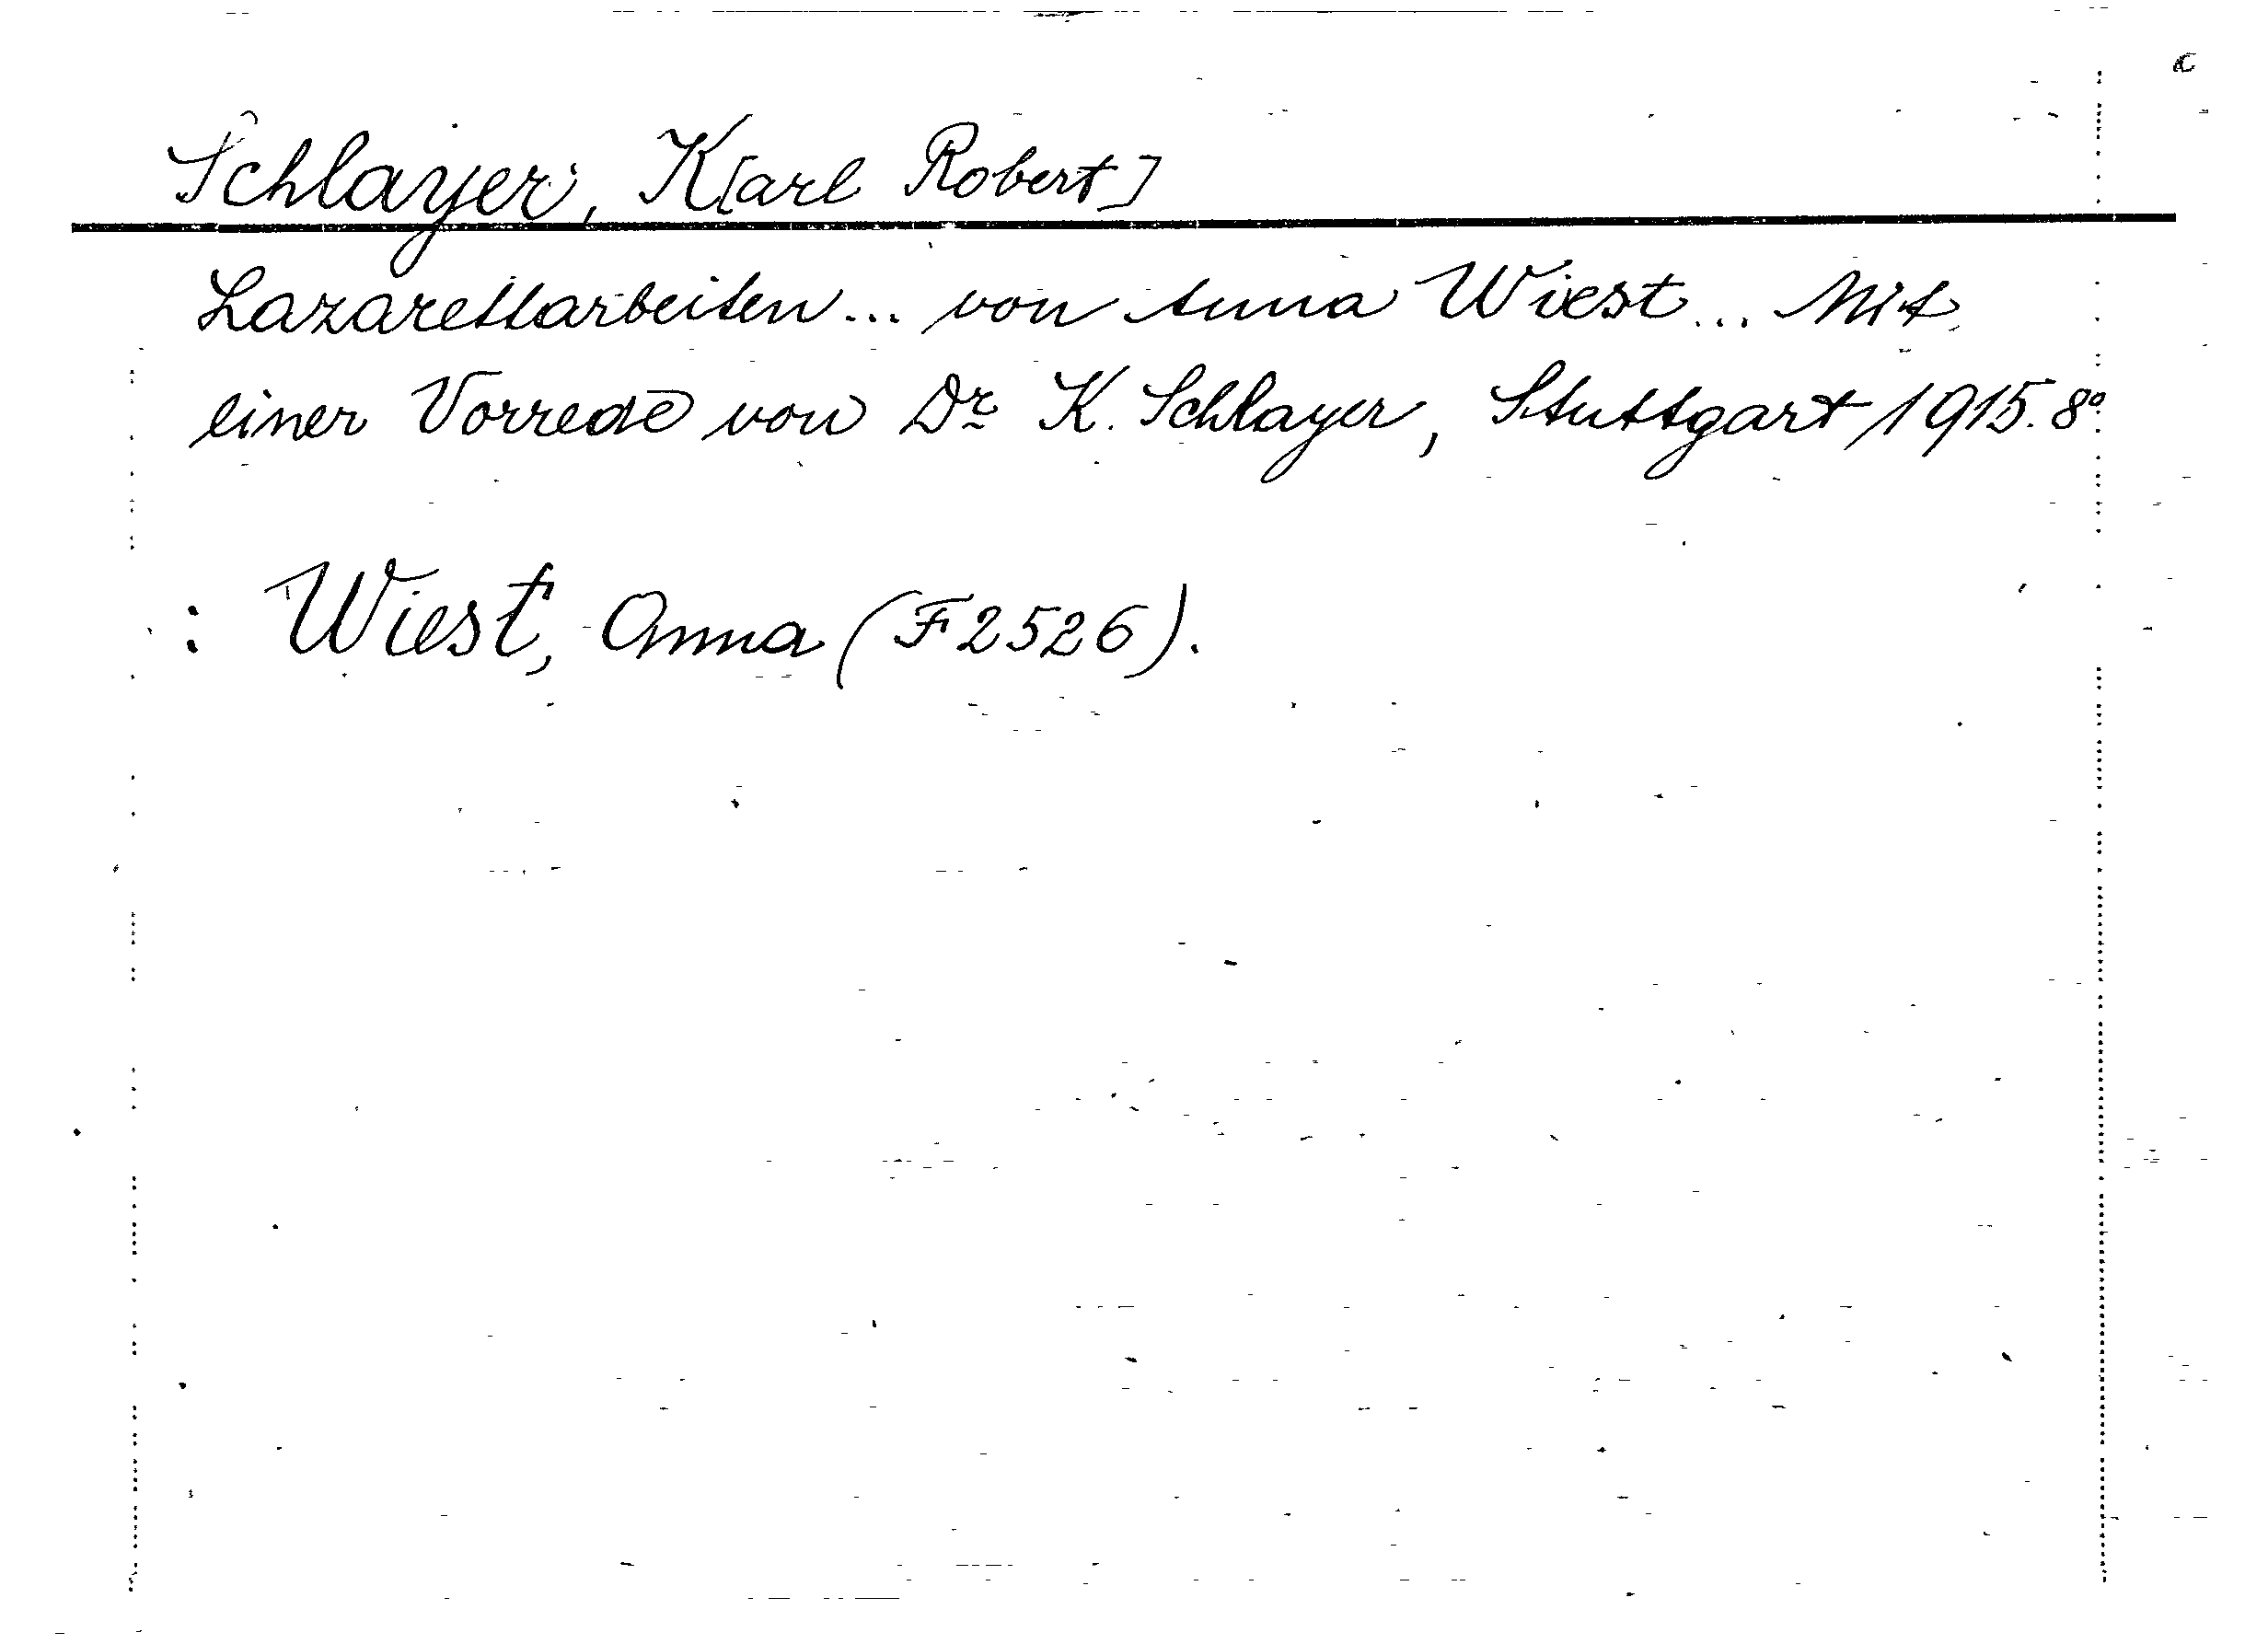 c
Schlayer, K[arl Robert]
Lazarettarbeiten... von Anna Wiest... Mit
einer Vorrede von Dr K. Schlayer, Stuttgart 1915. 8°
: Wiest, Anna (F2526).